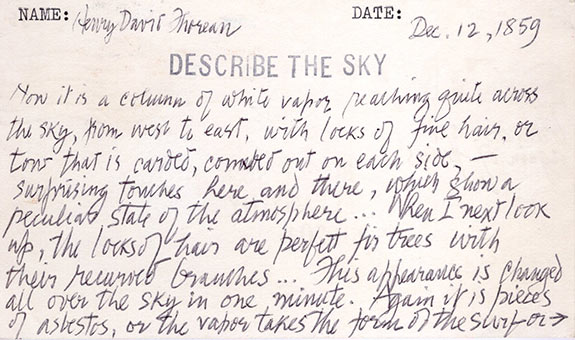 NAME: Henry David Thoreau DATE: Dec. 12, 1859
DESCRIBE THE SKY
Now it is a column of white vapor reaching quite across
the sky, from west to east, with locks of fine hair, or
tow that is carded, combed out on each side, —
surprising touches here and there, which show a
peculiar state of the atmosphere... When I next look
up, the locks of hair are perfect fir trees with
their recurved branches... This appearance is changed
all over the sky in one minute. Again it is pieces
of asbestos, or the vapor takes the form of the surf or →